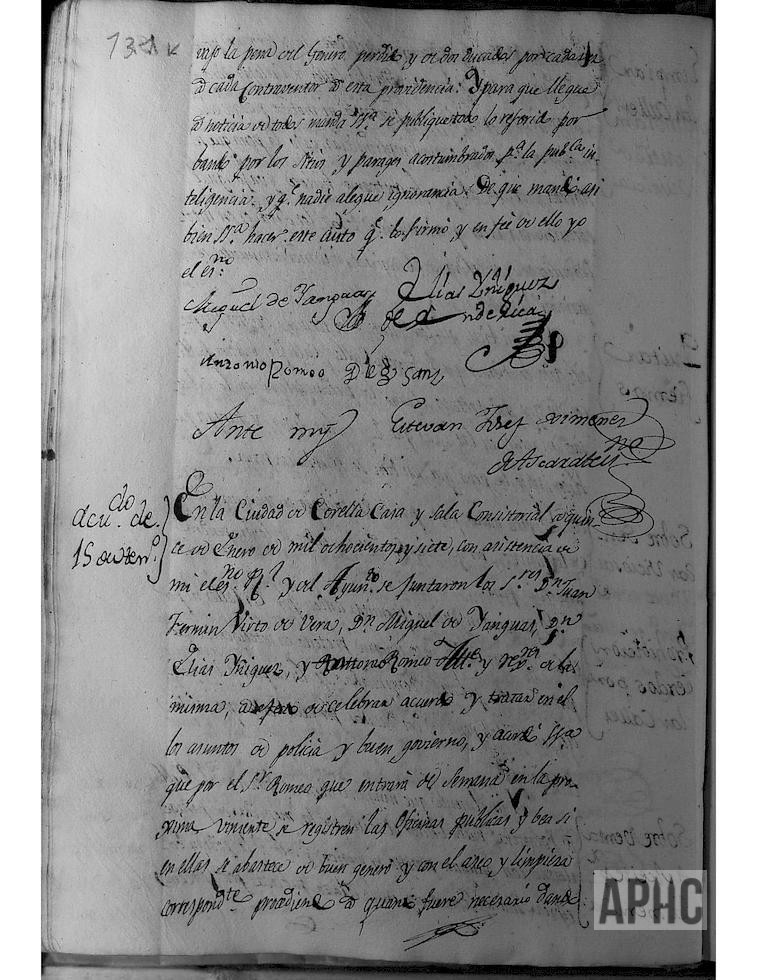 vajo la pena del Genero perdido y de dos ducados por cada vez
à cada Contraventor à esta providencia: Y para que llegue
à noticia de todos manda SSª se publique todo lo referido por
bando por los sitios y parages acostumbrados pª la pubca in-
teligencia y qe nadie alegue ignorancia. De que mandó asi
bien SSª hacer este auto qe lo firmó y en feè de ello yo
el esno:
Miguel de Yanguas Elias Yñiguez
de
Antonio Romeo Diego Sanz
Ante my Estevan Josef Ximenez
de Ascarate
Acudo. de
15 de Eno.
En la Ciudad de Corella Casa y sala Consistorial à quin-
ce de Enero de mil ochocientos y siete, con asistencia de
mi el esno Rl y del Ayunto se juntaron los Sres Dn Juan
Fermin Virto de Vera, Dn Miguel de Yanguas, Dn
Elias Yñiguez, y Antonio Romeo Alles y rexres de la
misma, à efecto de celebrar acuerdo y tratar en el
los asuntos de policia y buen govierno, y acordó SSª
que por el Sr Romeo que entrará de Semana en la pro-
xima viniente se registren las Oficinas publicas y bea si
en ellas se abastece de buen genero y con el aseo y limpieza
correspondte procediendo à quanto fuere necesario dando
APHC